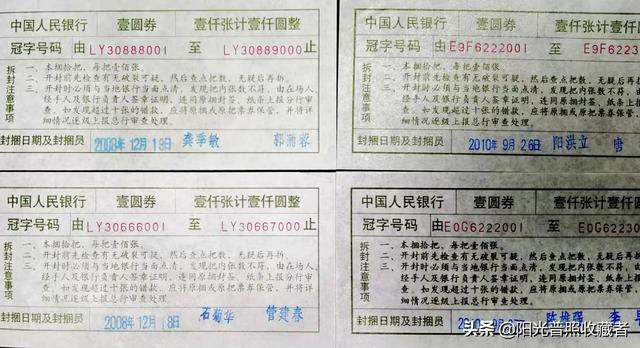 中国人民银行 壹圆券 壹仟张计壹仟圆整
冠字号码 由LY30888001 至 LY30889000止
拆封注意事项
一、本捆拾把，每把壹佰张。
二、开封前先检查有无破裂可疑，然后查点把数，无疑后再拆。
三、开封时必须与当地银行当面点清，发现把内张数不符，由在场人、
经手人及银行负责人签章证明，连同原捆封签、纸条上报分行审
查。如发现超过十张的错款，应将原捆或原把票券保管，并将详
细情况逐级上报总行审查处理。
封捆日期及封捆员 2008年12月18日 龚季敏
中国人民银行 壹圆券 壹仟张计壹仟圆整
冠字号码 由E9F6222001 至 E9F6223
拆封注意事项
一、本捆拾把，每把壹佰张。
二、开封前先检查有无破裂可疑，然后查点把数，无疑后再拆。
三、开封时必须与当地银行当面点清，发现把内张数不符，由在场人、
经手人及银行负责人签章证明，连同原捆封签、纸条上报分行审
查。如发现超过十张的错款，应将原捆或原把票券保管，并将详
细情况逐级上报总行审查处理。
封捆日期及封捆员 2010年9月26日 阳洪立 唐
中国人民银行 壹圆券 壹仟张计壹仟圆整
冠字号码 由LY30666001 至 LY30667000止
拆封注意事项
一、本捆拾把，每把壹佰张。
二、开封前先检查有无破裂可疑，然后查点把数，无疑后再拆。
三、开封时必须与当地银行当面点清，发现把内张数不符，由在场人、
经手人及银行负责人签章证明，连同原捆封签、纸条上报分行审
查。如发现超过十张的错款，应将原捆或原把票券保管，并将详
细情况逐级上报总行审查处理。
封捆日期及封捆员 2008年12月18日 石菊华 管建春
中国人民银行 壹圆券 壹仟张计壹仟圆整
冠字号码 由E0G6222001 至 E0G62230
拆封注意事项
一、本捆拾把，每把壹佰张。
二、开封前先检查有无破裂可疑，然后查点把数，无疑后再拆。
三、开封时必须与当地银行当面点清，发现把内张数不符，由在场人、
经手人及银行负责人签章证明，连同原捆封签、纸条上报分行审
查。如发现超过十张的错款，应将原捆或原把票券保管，并将详
细情况逐级上报总行审查处理。
封捆日期及封捆员
头条 @阳光普照收藏者